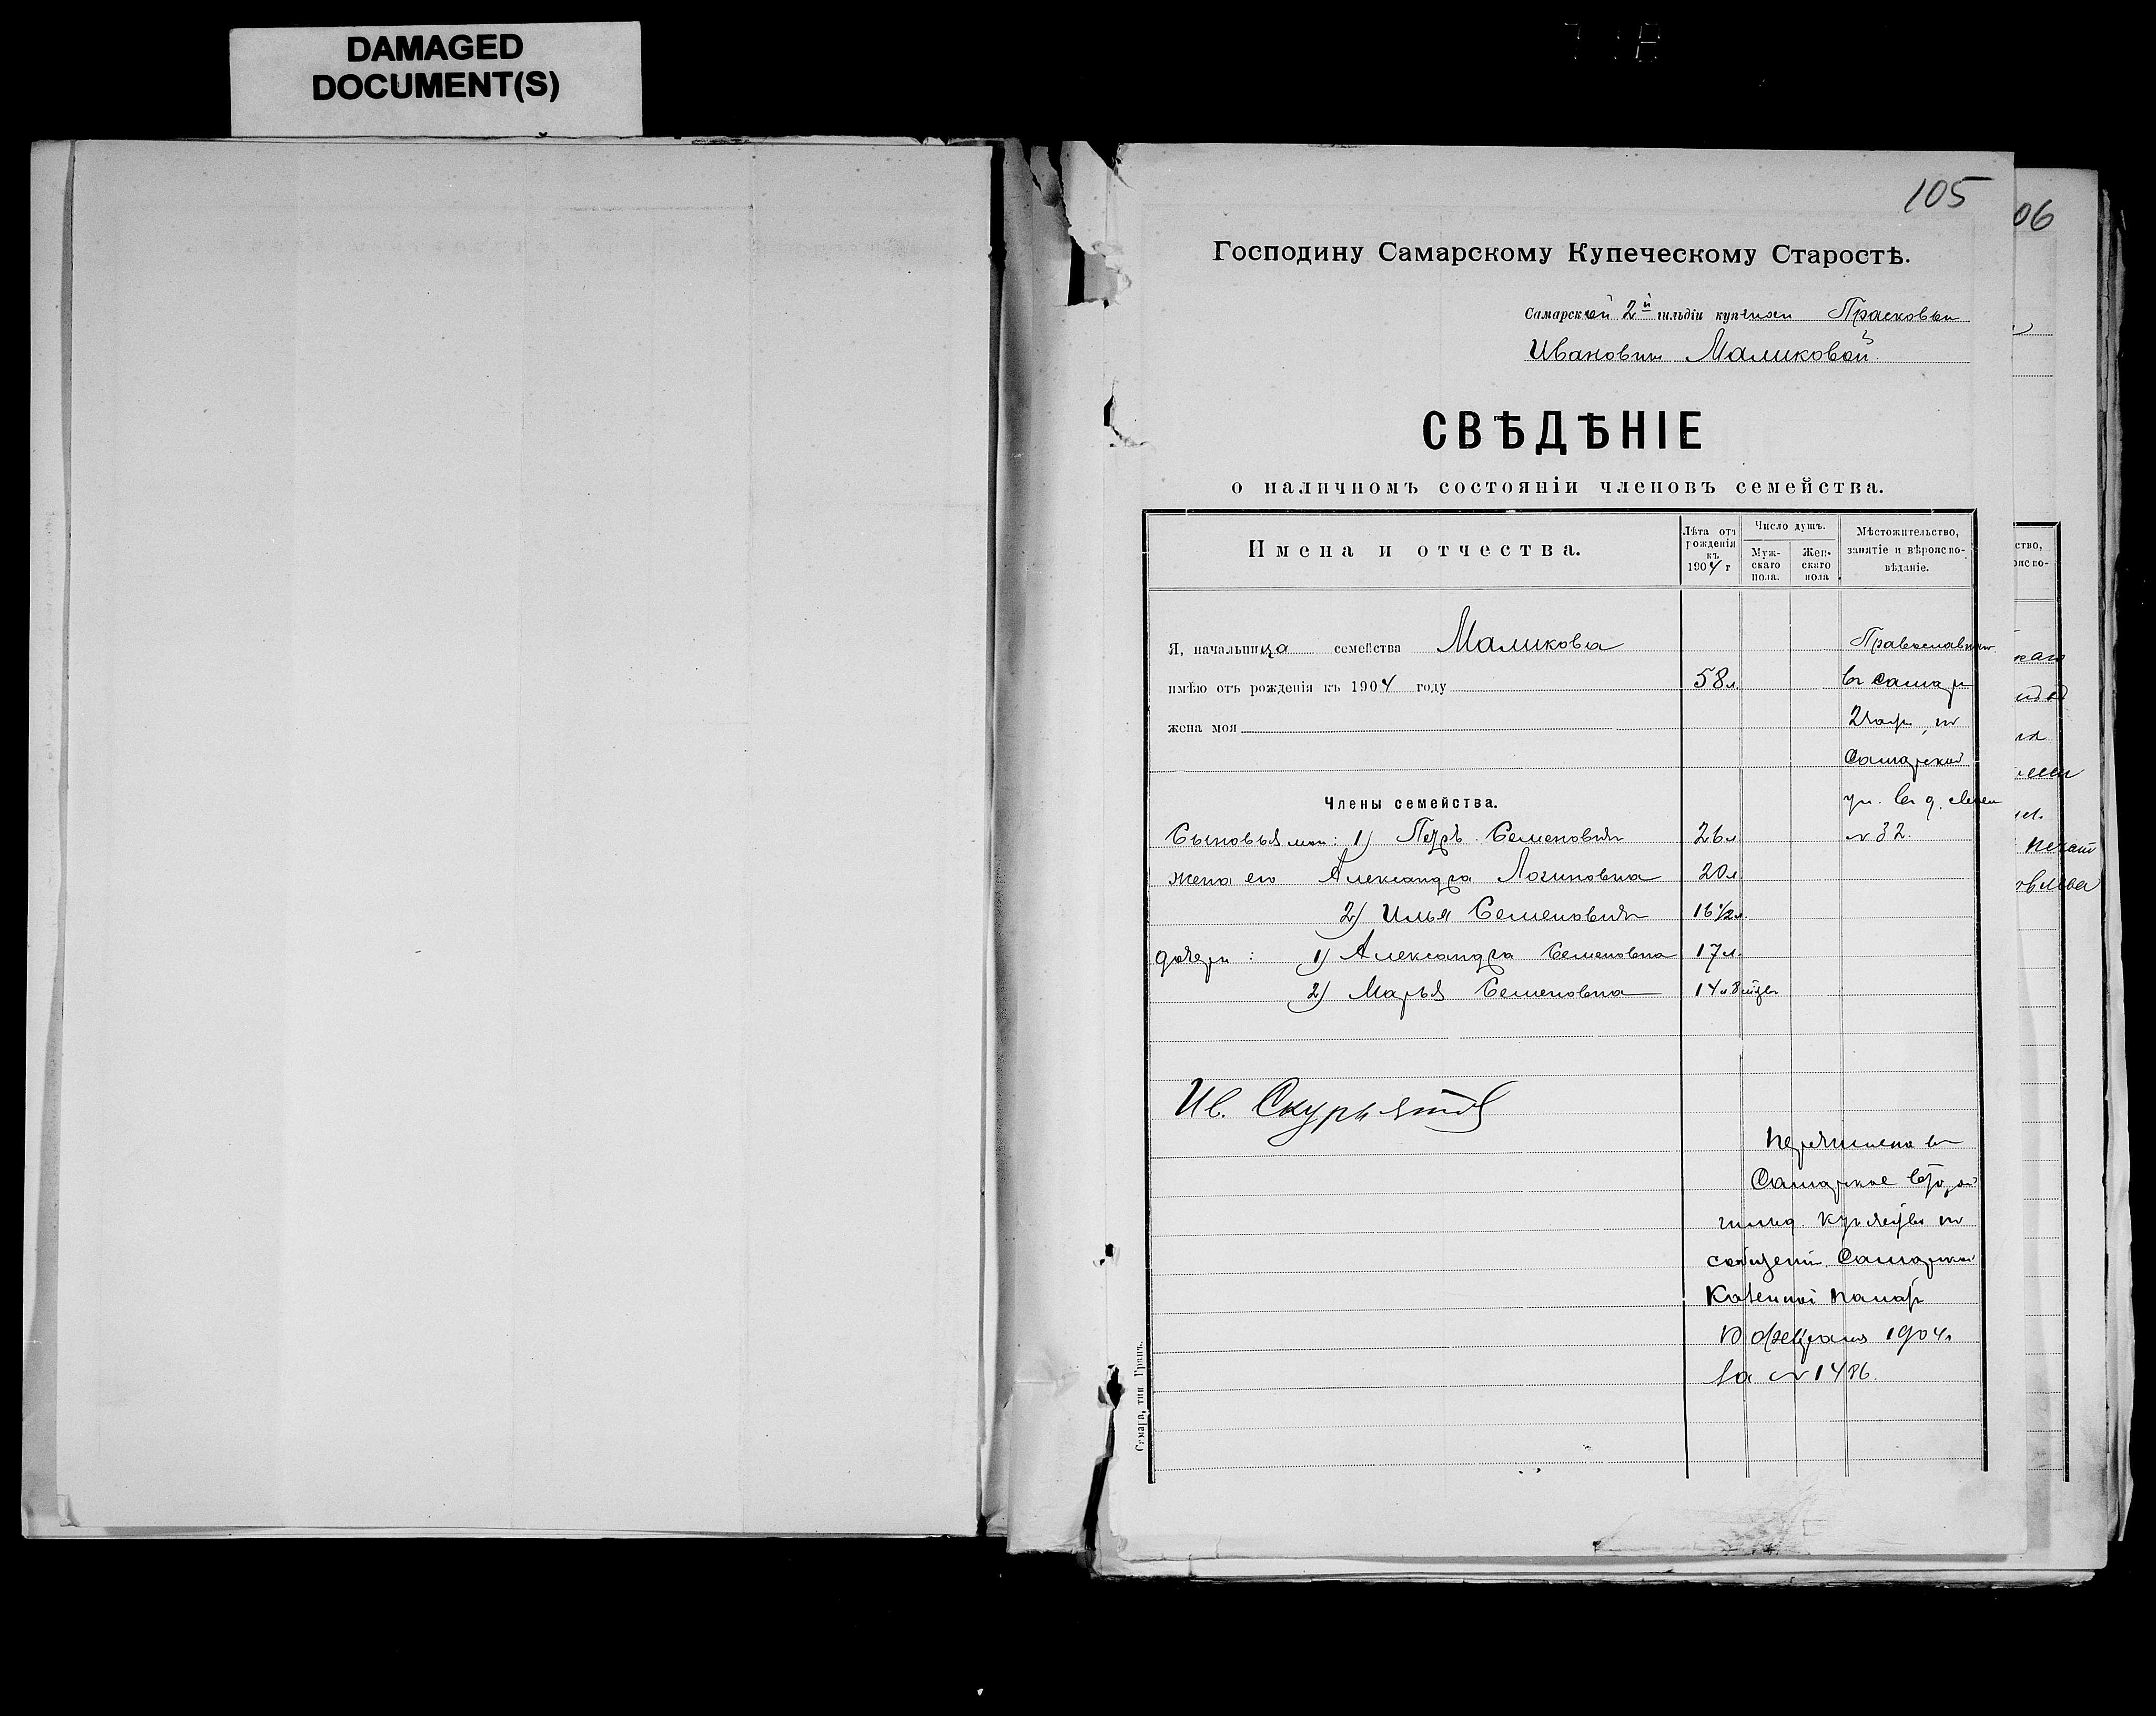 DAMAGED
DOCUMENT(S)
105
06
Господину Самарскому Купеческому Старостѣ.
Самарской 2й гильдіи купчихи Прасковьи
Ивановны Маликовой.
СВѢДѢНІЕ
о наличномъ состояніи членовъ семейства.
Имена и отчества.
Лѣта отъ рожденія къ 1904 г
Число душъ.
Мужскаго пола.
Женскаго пола
Мѣстожительство, занятіе и вѣроисповѣданіе.
Я, начальница семейства Маликова
Православная
имѣю отъ рожденія къ 1904 году 58 л.
въ Самарѣ
жена моя
2 част. по
Самарской
Члены семейства.
ул. въ д.
Сыновья мои: 1) Петръ Семеновичъ 26 л
№ 32.
жена его Александра Логиновна 20 л
2) Илья Семеновичъ 16 1/2 л.
дочери: 1) Александра Семеновна 17 л.
2) Марья Семеновна 14 л 8 мцевъ
Ив. Скурятов
Перечислена въ
Самарское второй
гильд. купечество по
сообщенію Самарской
Казенной палаты
10 февраля 1904 г
за № 1486.
Самара, тип Гранъ.